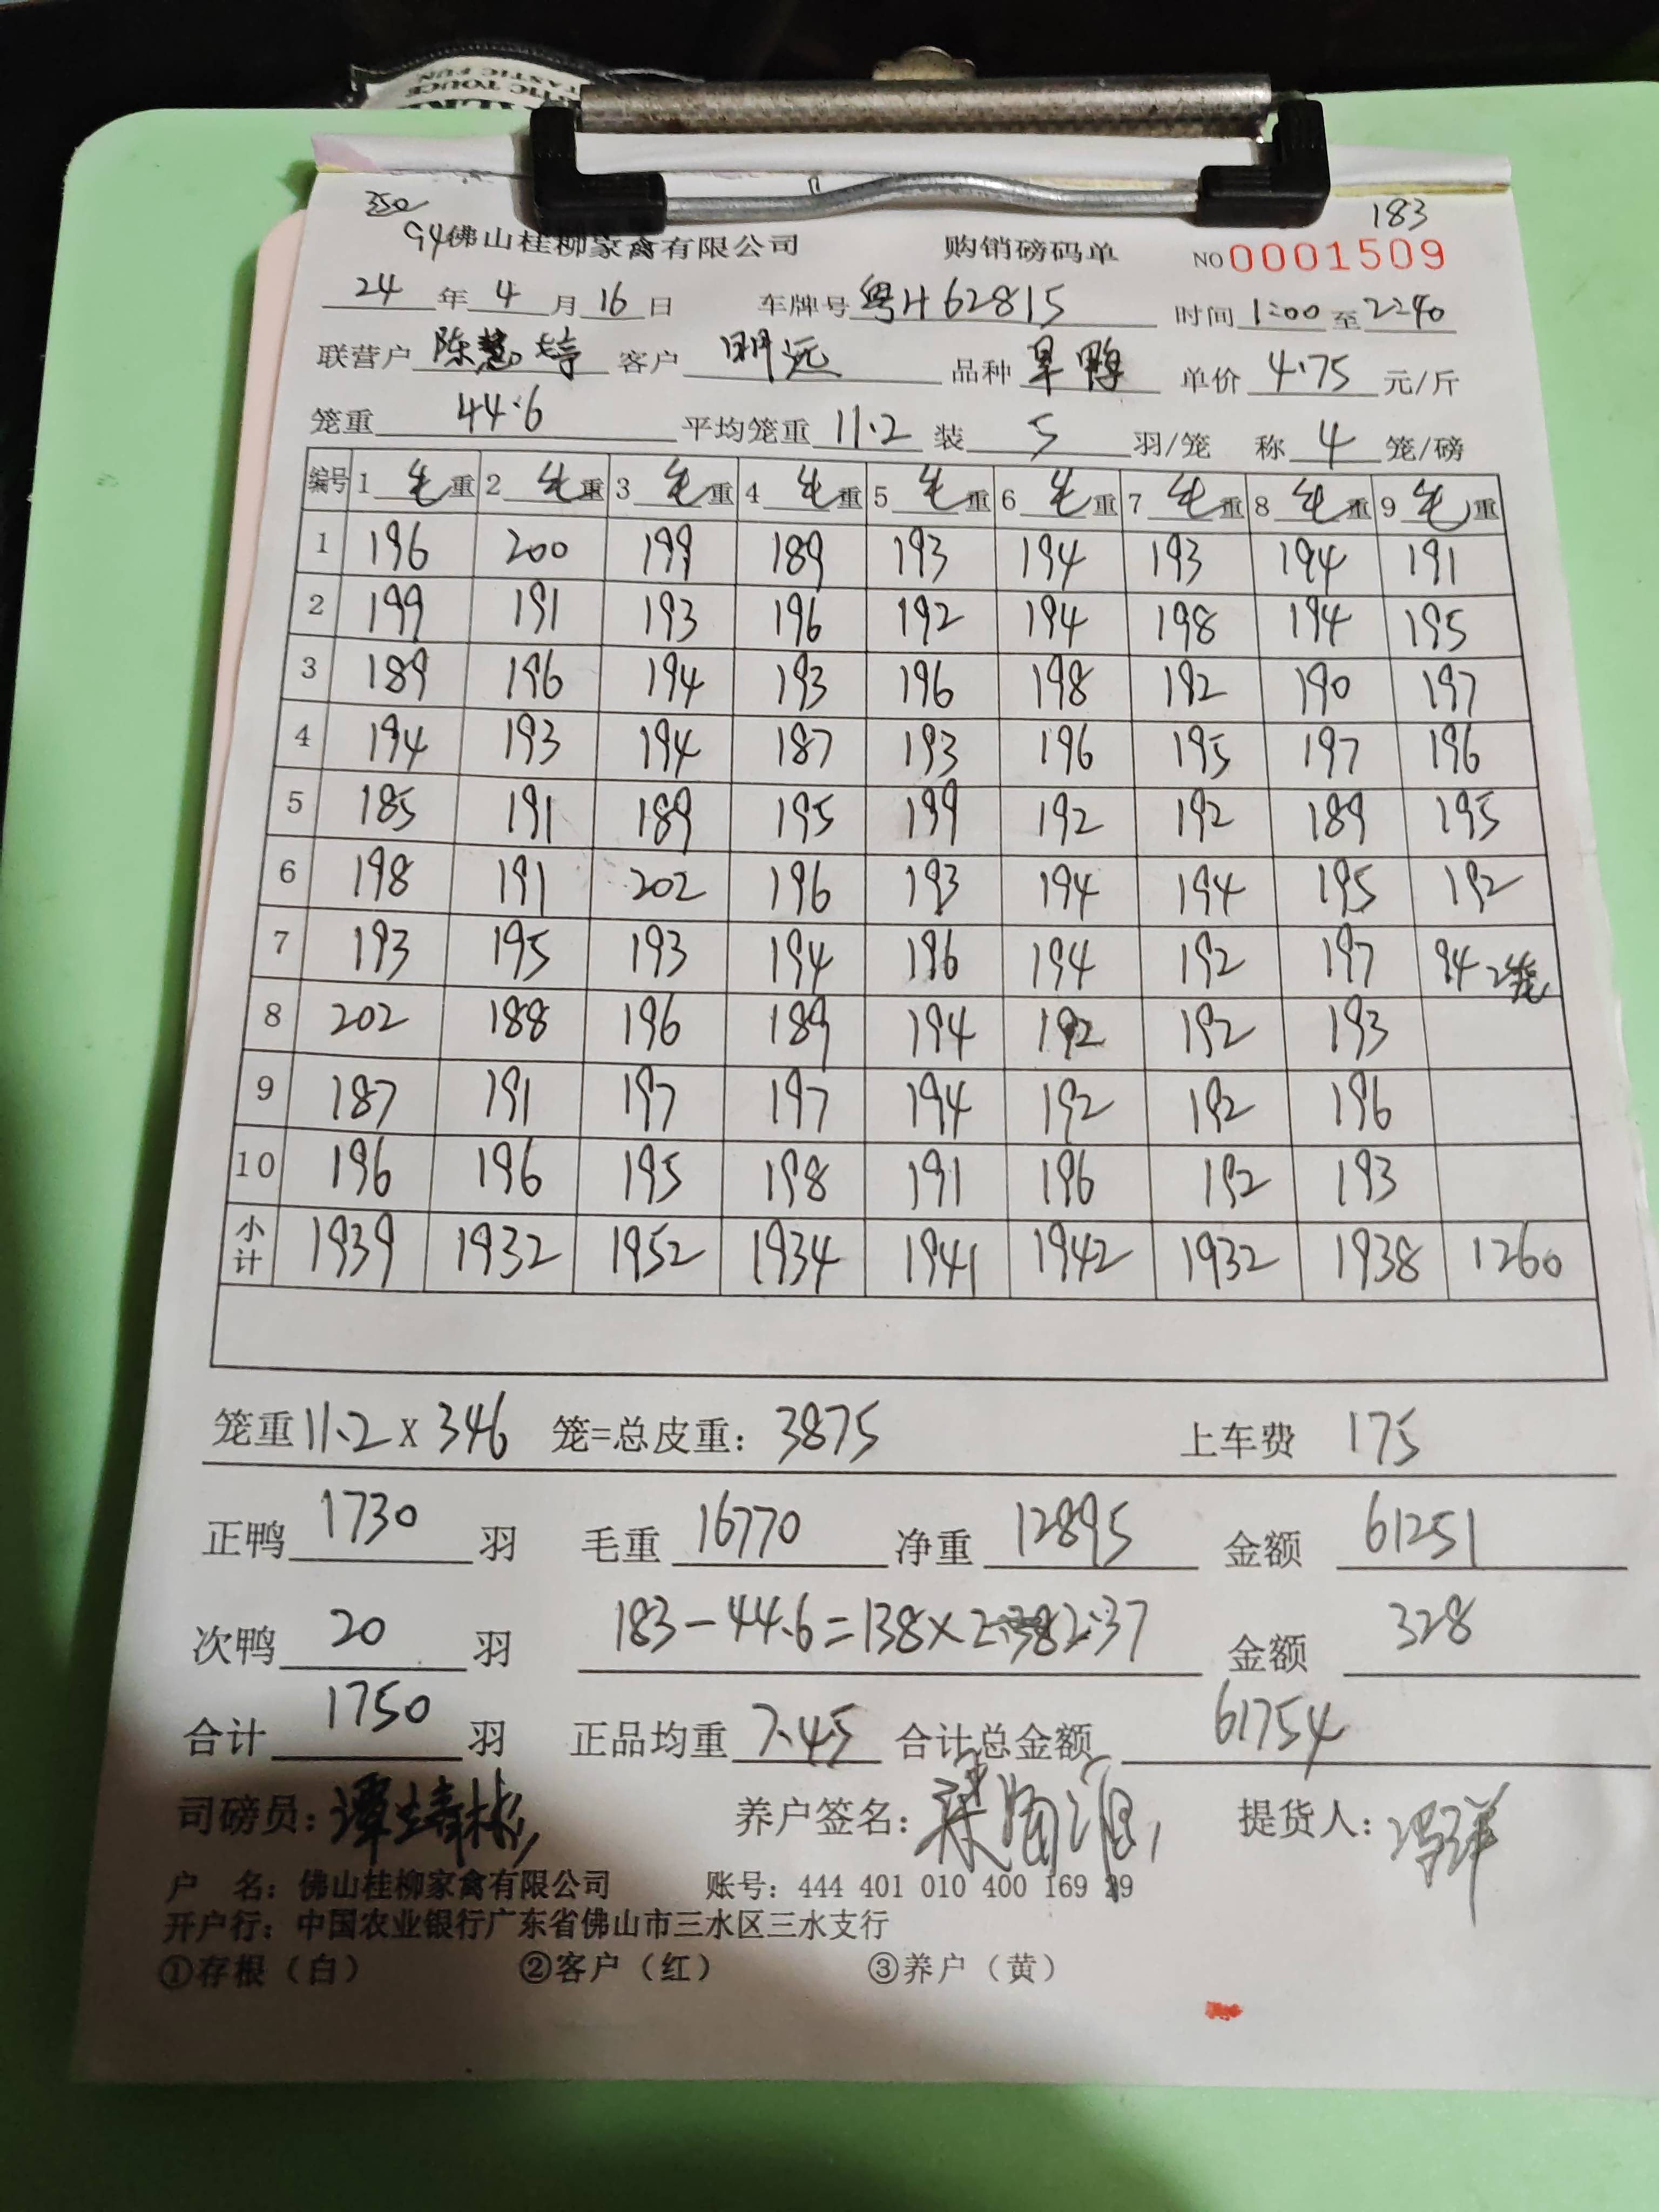 350 183
94佛山桂柳家禽有限公司 购销磅码单 NO 0001509
24 年 4 月 16 日 车牌号 粤H62815 时间 1:00 至 2:40
联营户 陈慧婷 客户 明远 品种 旱鸭 单价 4.75 元/斤
笼重 44.6 平均笼重 11.2 装 5 羽/笼 称 4 笼/磅
编号 1 毛重 2 毛重 3 毛重 4 毛重 5 毛重 6 毛重 7 毛重 8 毛重 9 毛重
1 196 200 199 189 193 194 193 194 191
2 199 191 193 196 192 194 198 194 195
3 189 196 194 193 196 198 192 190 197
4 194 193 194 187 193 196 195 197 196
5 185 191 189 195 199 192 192 189 195
6 198 191 202 196 193 194 194 195 192
7 193 195 193 194 196 194 192 197 94 2笼
8 202 188 196 189 194 192 192 193
9 187 191 197 197 194 192 192 196
10 196 196 195 198 191 196 192 193
小计 1939 1932 1952 1934 1941 1942 1932 1938 1260
笼重 11.2 X 346 笼=总皮重: 3875 上车费 175
正鸭 1730 羽 毛重 16770 净重 12895 金额 61251
次鸭 20 羽 183-44.6=138× 2.37 金额 328
合计 1750 羽 正品均重 7.45 合计总金额 61754
司磅员: 谭靖彬 养户签名: 提货人:
户 名: 佛山桂柳家禽有限公司 账号: 444 401 010 400 169 29
开户行: 中国农业银行广东省佛山市三水区三水支行
①存根（白） ②客户（红） ③养户（黄）